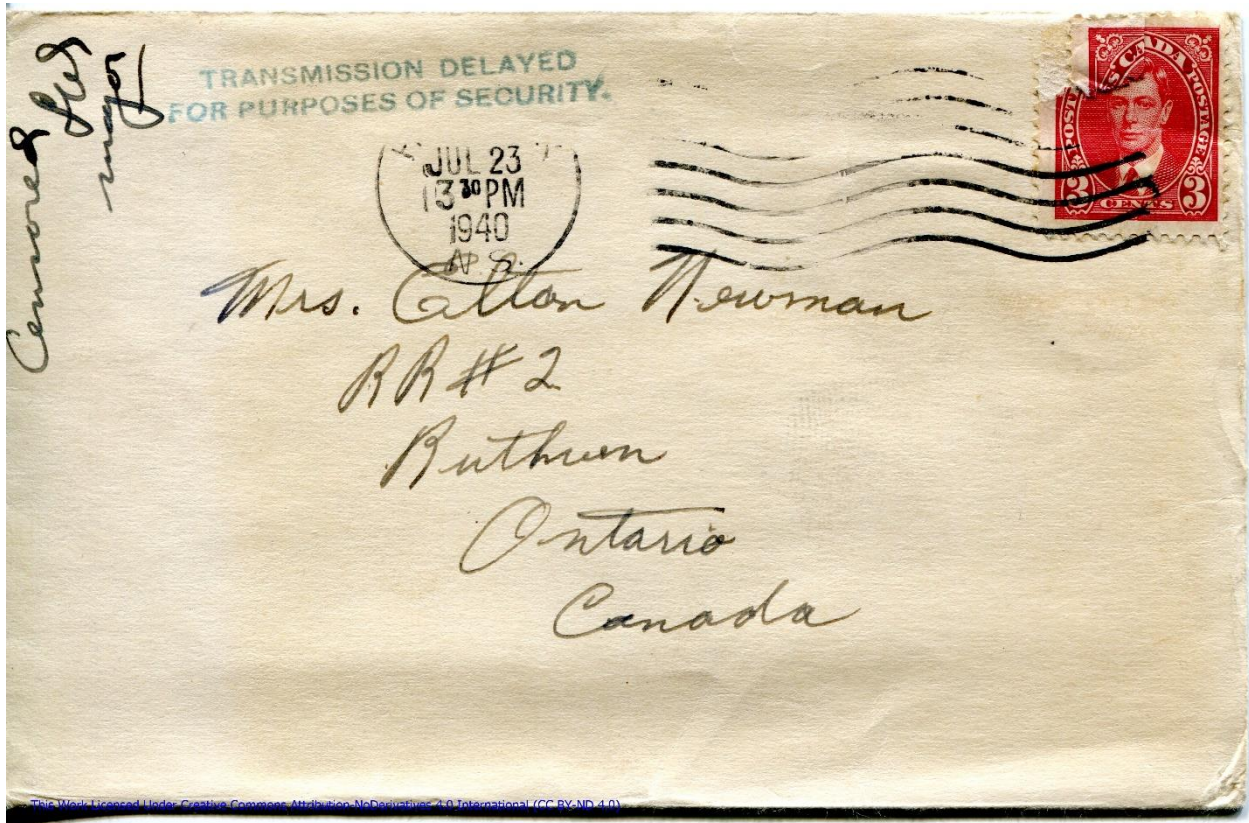 Censored
major
TRANSMISSION DELAYED
FOR PURPOSES OF SECURITY.
JUL 23
3 30 PM
1940
N.S.
POSTES CANADA POSTAGE
3 CENTS 3
Mrs. Elton Newman
RR #2
Ruthven
Ontario
Canada
This Work Licensed Under Creative Commons Attribution-NoDerivatives 4.0 International (CC BY-ND 4.0)